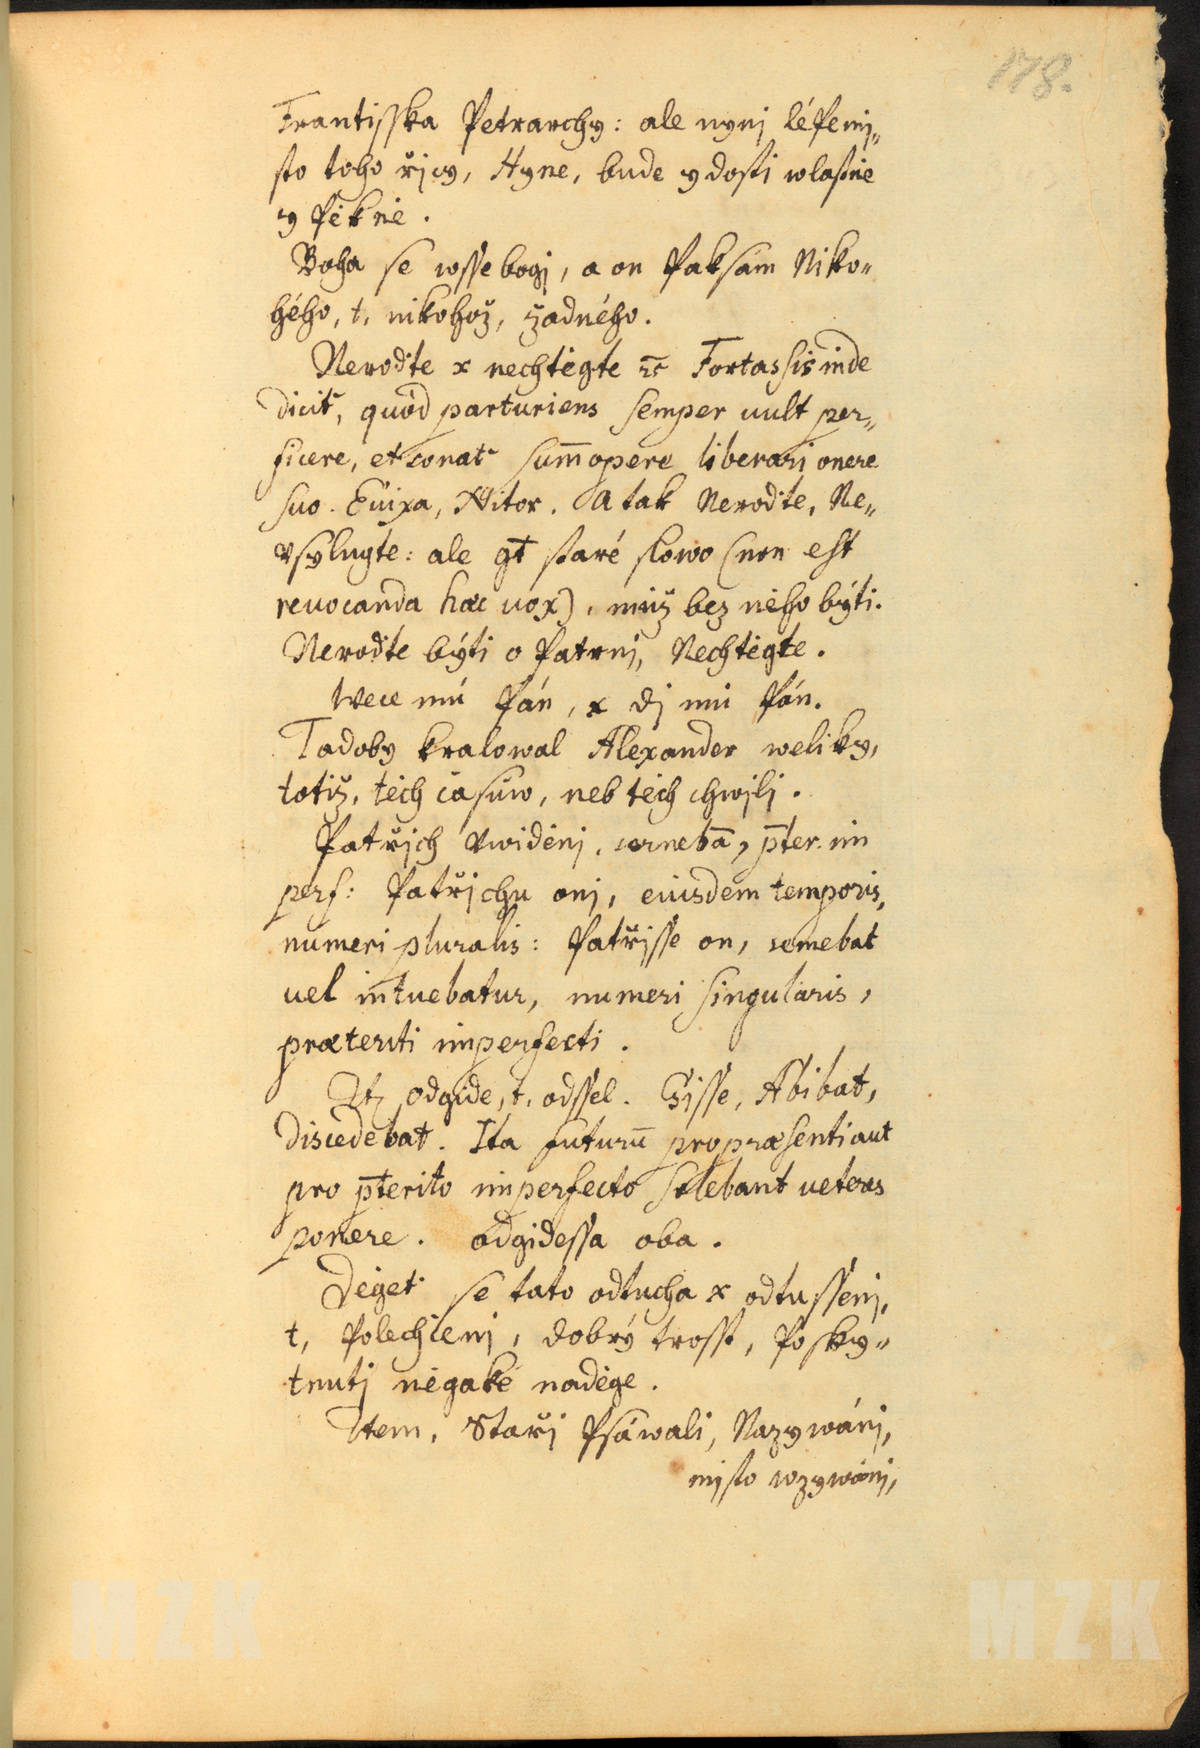 178.
Frantisska Petrarchy: ale nynj lépe mj„
sto toho řjcy, Hyne, bude y dosti wlastně
y pěkně.
Boha se wsse bogj, a on pak sám Niko„
hého, t. nikohož, žadného.
Neroďte x nechtěgte ꝛc Fortassis inde
dicit˜, quòd parturiens semper uult per„
ficere, et conat˜ sum̄opere liberari onere
suo. Enixa, Nitor. A tak Neroďte, Ne„
vsylugte: ale gt̄ staré slowo (non est
reuocanda haec uox), můž bez něho býti.
Neroďte býti opatrnj, Nechtěgte.
Wece mú pán, x dj mú pán.
Tadoby kralowal Alexander weliky,
totiž, těch časůw, neb těch chwjlj.
Patřjch vwiděnj, cernebā, p̄ter. im
perf: Patřjchu onj, eiusdem temporis,
numeri pluralis: Patřjsse on, cernebat
uel intuebatur, numeri singularis,
praeteriti imperfecti.
Itz odgide, t. odssel. Gisse, Abibat,
Discedebat. Ita futurū pro praesenti aut
pro p̄terito imperfecto solebant ueteres
ponere. odgidessa oba.
Děget se tato odtucha x odtussenj,
t, polechčenj, dobrý trosst, posky„
tnutj něgaké naděge.
Item, Stařj psáwali, Nazywánj,
mjsto wzywánj,
MZK
MZK